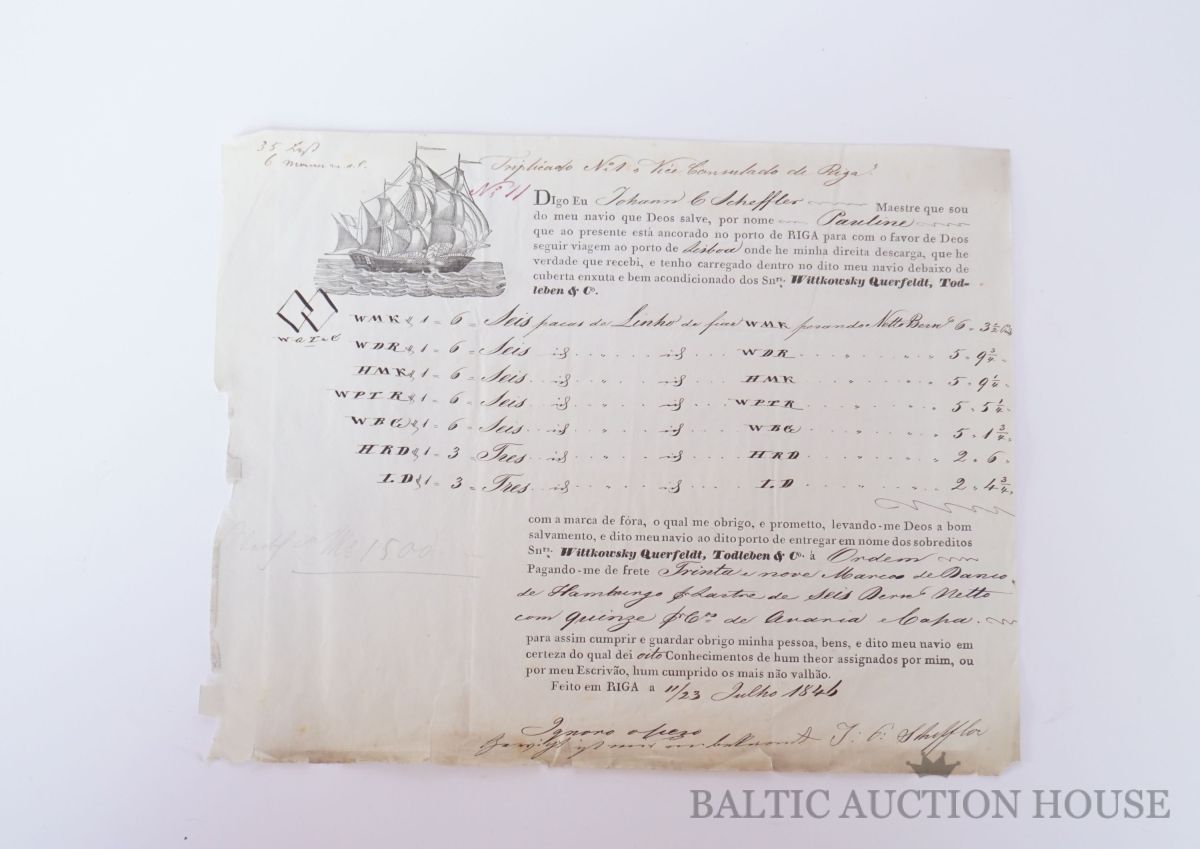 35 Last
Triplicado Nº 1 o Vice Consulado de Riga.
Nº 11
DIgo Eu Johann C Scheffler Maestre que sou
do meu navio que Deos salve, por nome Pauline
que ao presente está ancorado no porto de RIGA para com o favor de Deos
seguir viagem ao porto de Lisboa onde he minha direita descarga, que he
verdade que recebi, e tenho carregado dentro no dito meu navio debaixo de
cuberta enxuta e bem acondicionado dos Snrs. Wittkowsky Querfeldt, Tod-
leben & Cº.
WMK 1 = 6 = Seis pacas de Linho de fiar WMK pezando Netto Bern 6 = 3 1/2
WDR 1 = 6 = Seis id id WDR 5 = 9 3/4
HMK 1 = 6 = Seis id id HMK 5 = 9 1/4
WPTR 1 = 6 = Seis id id WPTR 5 = 5 1/4
WBG 1 = 6 = Seis id id WBG 5 = 1 3/4
HRD 1 = 3 = Tres id id HRD 2 = 6
I.D 1 = 3 = Tres id id I.D 2 = 4 3/4
com a marca de fóra, o qual me obrigo, e prometto, levando-me Deos a bom
salvamento, e dito meu navio ao dito porto de entregar em nome dos sobreditos
Snrs. Wittkowsky Querfeldt, Todleben & Cº. à Ordem
Pagando-me de frete Trinta e nove Marcos de Banco
de Hamburgo Lastre de Seis Bern Netto
com quinze de Avaria e Capa.
para assim cumprir e guardar obrigo minha pessoa, bens, e dito meu navio em
certeza do qual dei oito Conhecimentos de hum theor assignados por mim, ou
por meu Escrivão, hum cumprido os mais não valhão.
Feito em RIGA a 11/23 Julho 1846
1500
Ignoro o pezo
J: C: Scheffler
BALTIC AUCTION HOUSE